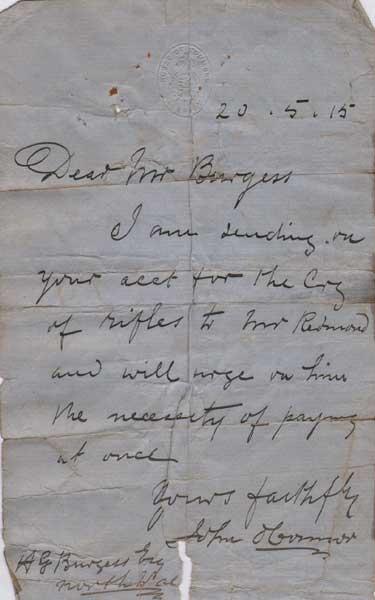 20.5.15
Dear Mr Burgess
I am sending on
your acct for the Cge
of rifles to Mr Redmond
and will urge on him
the necessity of paying
at once
Yours faithfly
John O'Connor
A G Burgess Esq
North Wal